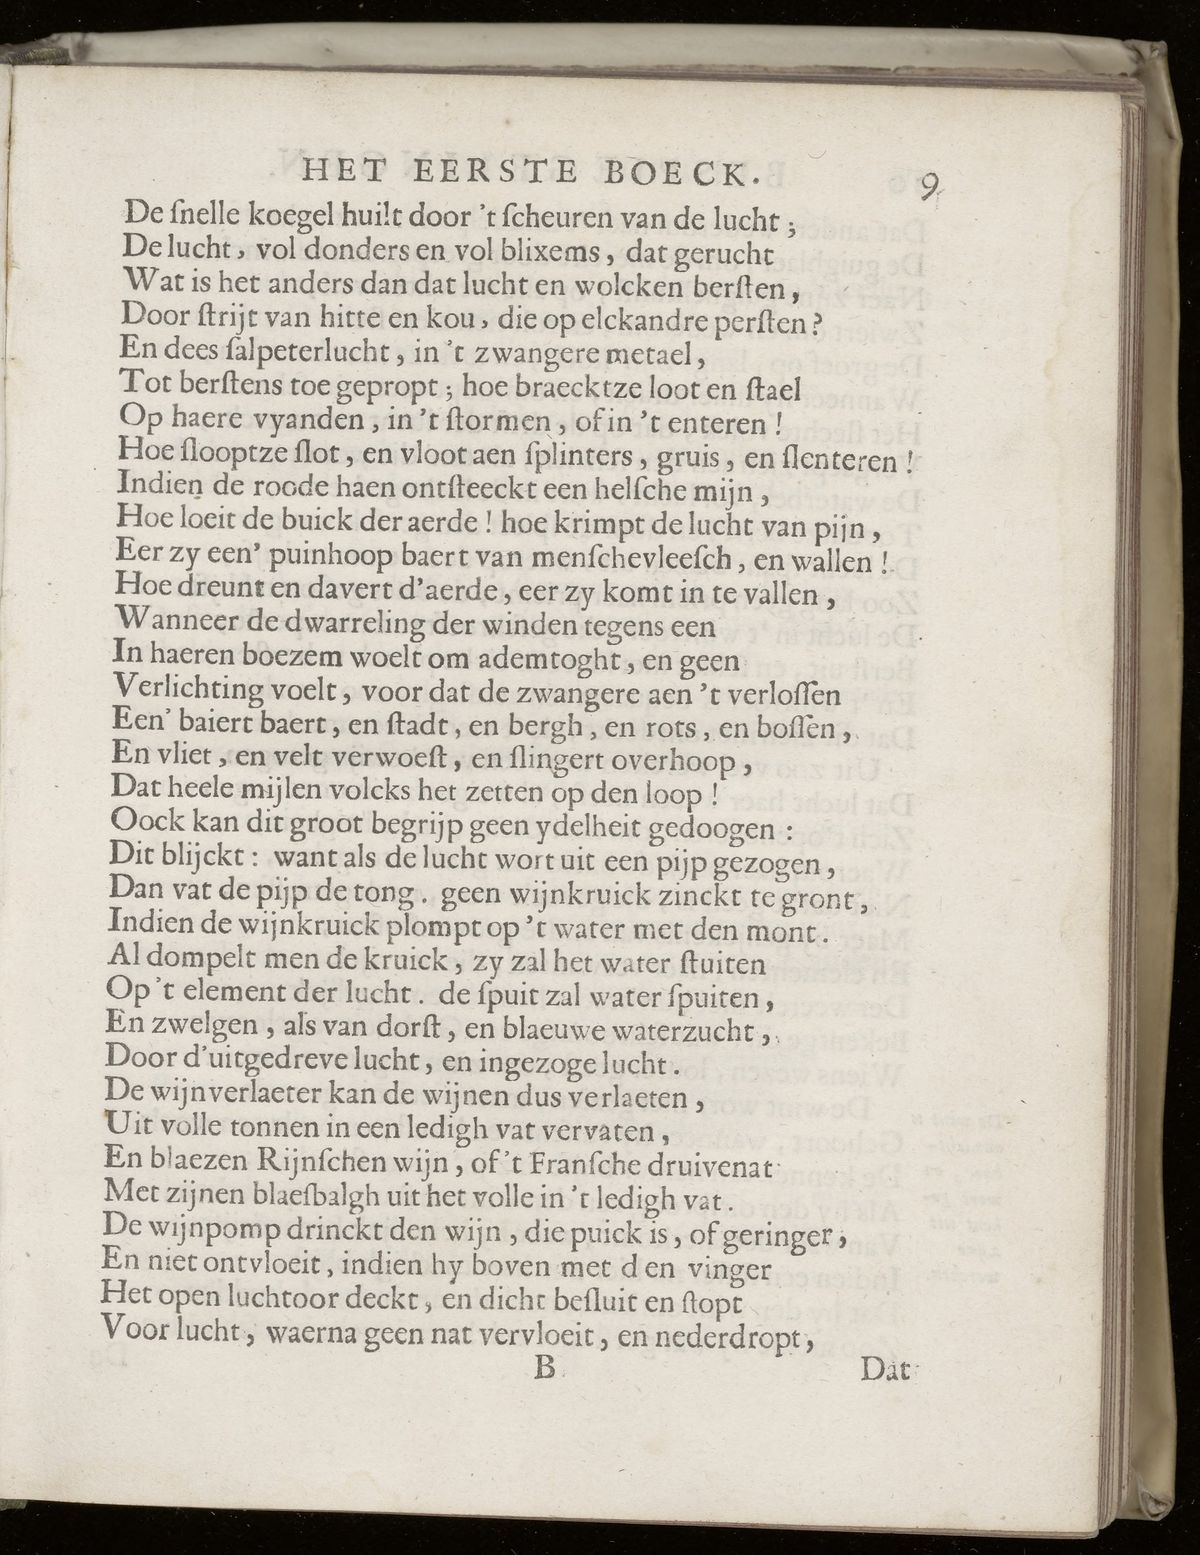 HET EERSTE BOECK. 9
De ſnelle koegel huilt door 't ſcheuren van de lucht;
De lucht, vol donders en vol blixems, dat gerucht
Wat is het anders dan dat lucht en wolcken berſten,
Door ſtrijt van hitte en kou, die op elckandre perſten?
En dees ſalpeterlucht, in 't zwangere metael,
Tot berſtens toe gepropt; hoe braecktze loot en ſtael
Op haere vyanden, in 't ſtormen, of in 't enteren!
Hoe ſlooptze ſlot, en vloot aen ſplinters, gruis, en ſlenteren!
Indien de roode haen ontſteeckt een helſche mijn,
Hoe loeit de buick der aerde! hoe krimpt de lucht van pijn,
Eer zy een' puinhoop baert van menſchevleeſch, en wallen!
Hoe dreunt en davert d'aerde, eer zy komt in te vallen,
Wanneer de dwarreling der winden tegens een
In haeren boezem woelt om ademtoght, en geen
Verlichting voelt, voor dat de zwangere aen 't verloſſen
Een' baiert baert, en ſtadt, en bergh, en rots, en boſſen,
En vliet, en velt verwoeſt, en ſlingert overhoop,
Dat heele mijlen volcks het zetten op den loop!
Oock kan dit groot begrijp geen ydelheit gedoogen:
Dit blijckt: want als de lucht wort uit een pijp gezogen,
Dan vat de pijp de tong. geen wijnkruick zinckt te gront,
Indien de wijnkruick plompt op 't water met den mont.
Al dompelt men de kruick, zy zal het water ſtuiten
Op 't element der lucht. de ſpuit zal water ſpuiten,
En zwelgen, als van dorſt, en blaeuwe waterzucht,
Door d'uitgedreve lucht, en ingezoge lucht.
De wijnverlaeter kan de wijnen dus verlaeten,
Uit volle tonnen in een ledigh vat vervaten,
En blaezen Rijnſchen wijn, of 't Franſche druivenat
Met zijnen blaeſbalgh uit het volle in 't ledigh vat.
De wijnpomp drinckt den wijn, die puick is, of geringer,
En niet ontvloeit, indien hy boven met den vinger
Het open luchtoor deckt, en dicht beſluit en ſtopt
Voor lucht, waerna geen nat vervloeit, en nederdropt,
B Dat